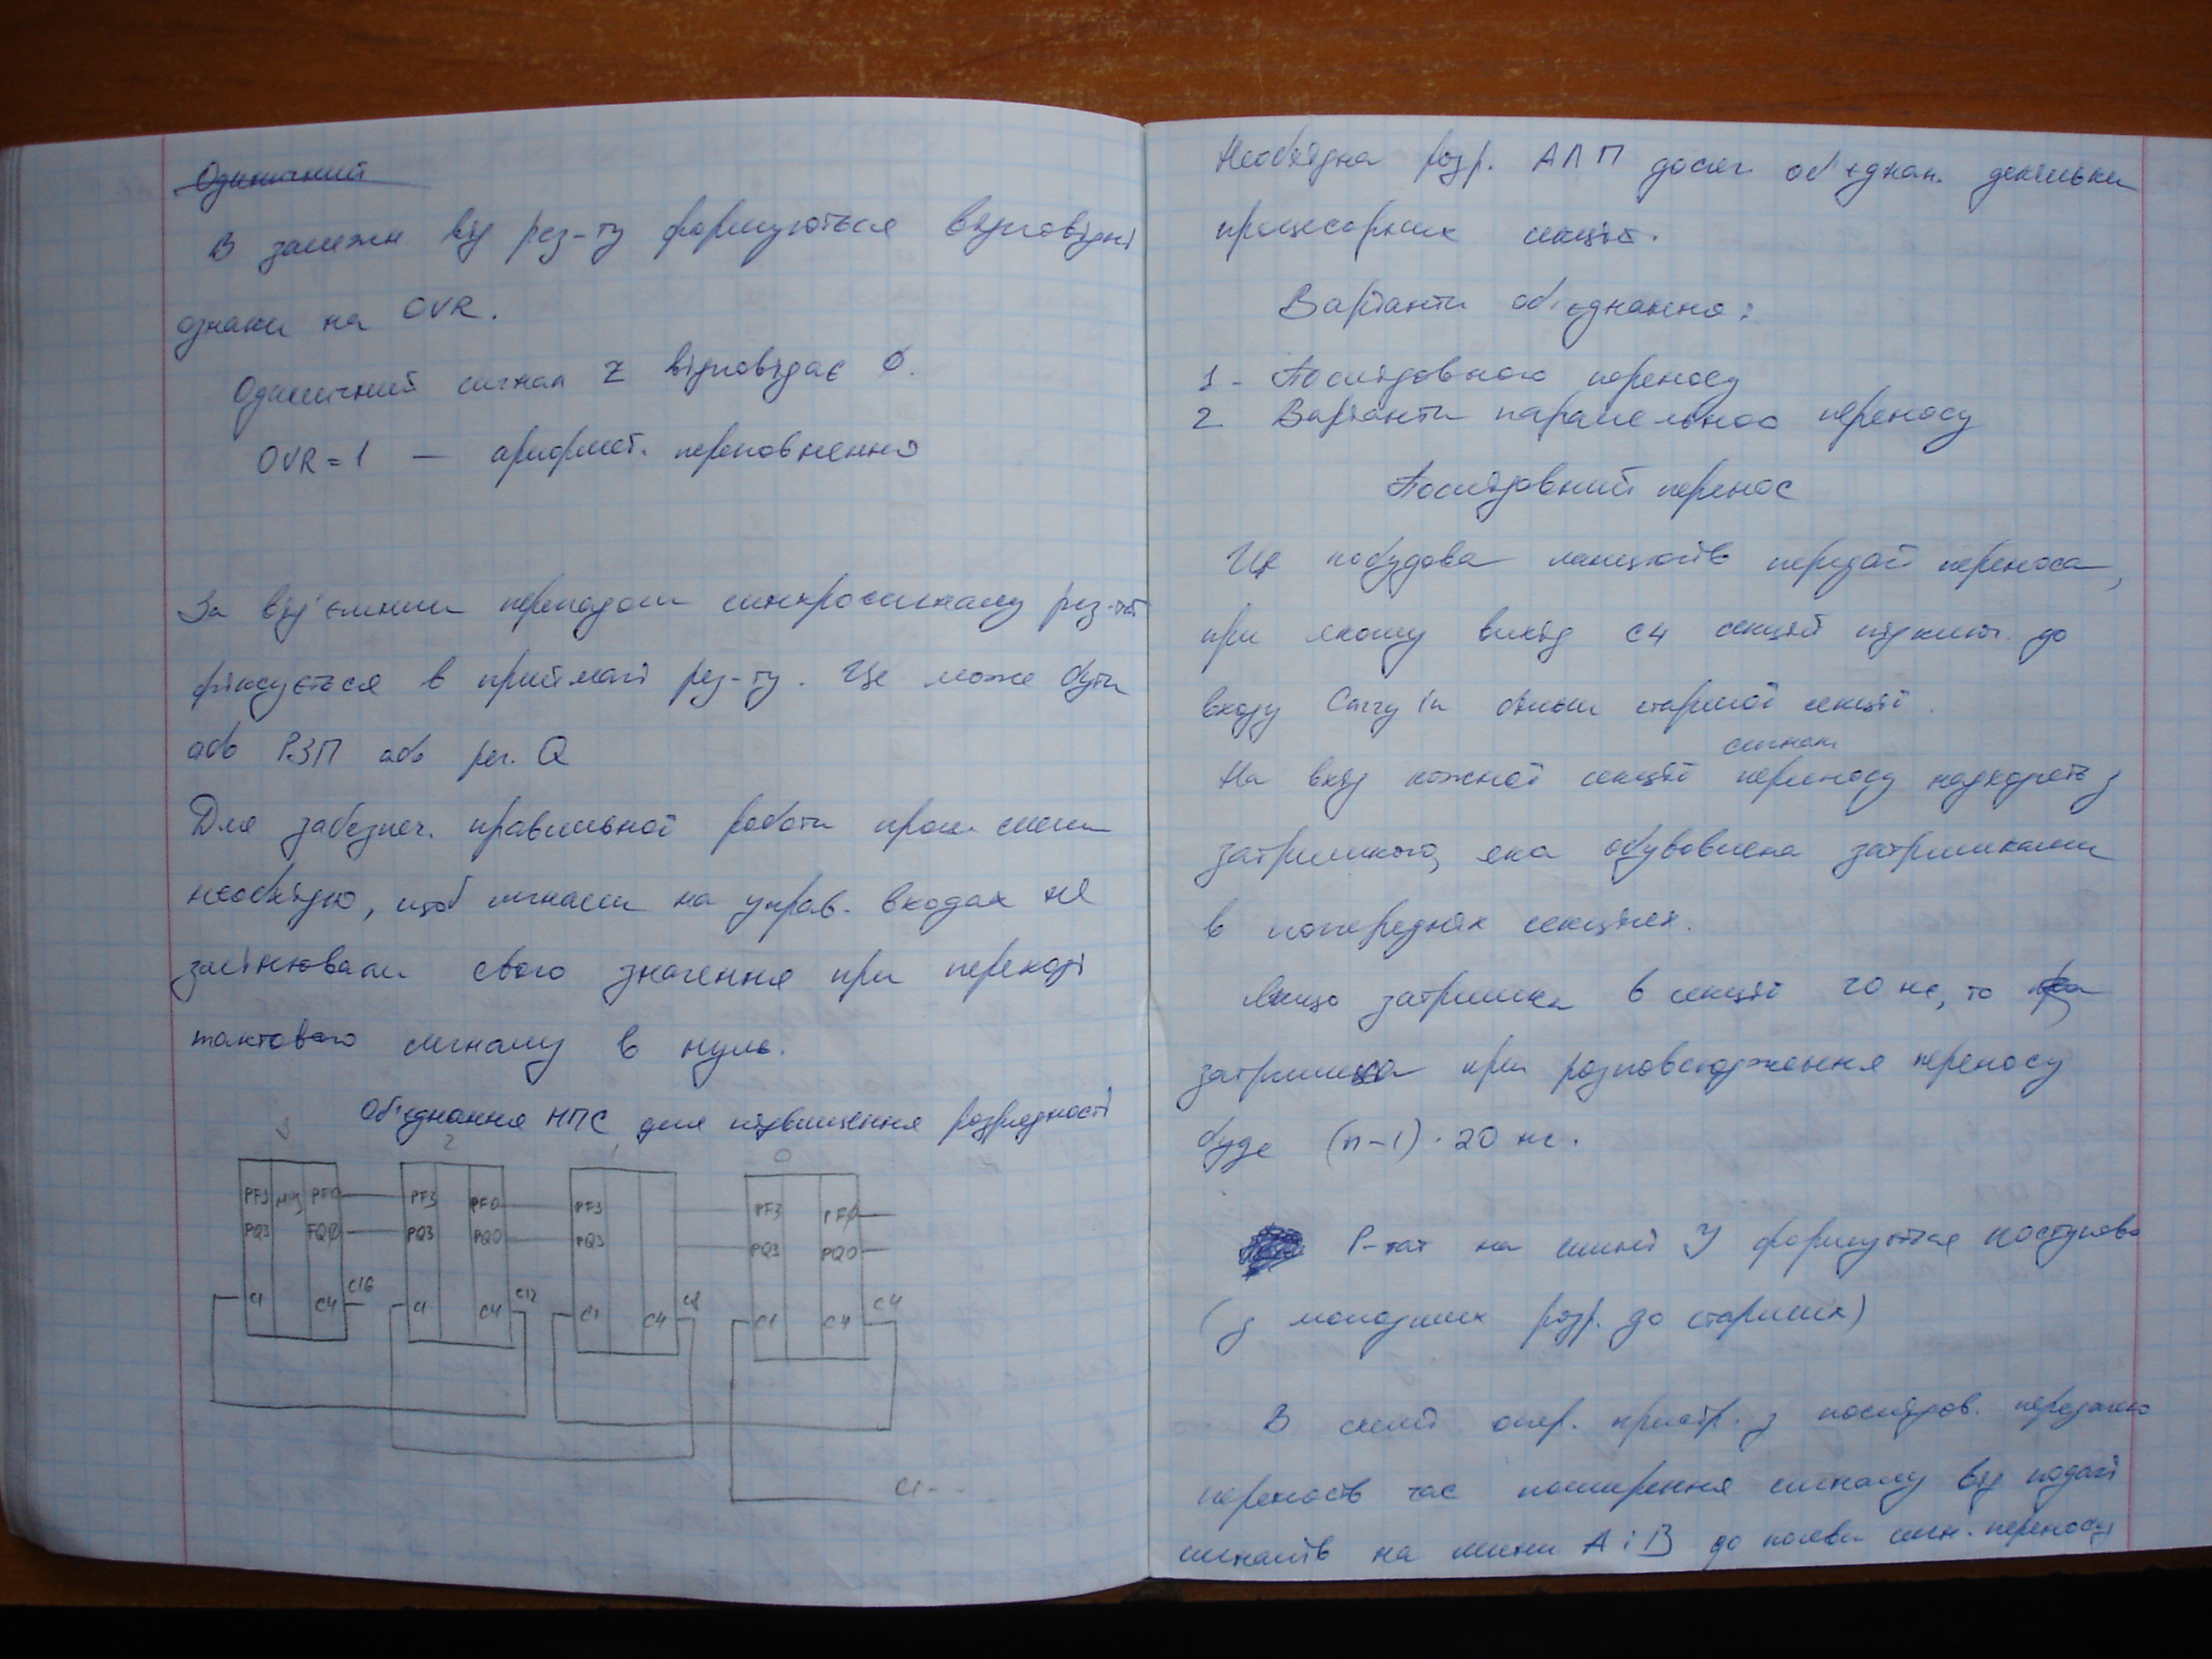 Одиничний
В залежн. від рез-ту формуються відповідні
ознаки на OVR.
Одиничний сигнал Z відповідає 0.
OVR = 1 — арифмет. переповнення
За від'ємним перепадом синхросигналу рез-тат
фіксується в приймачі рез-ту. Це може бути
або РЗП або рег. Q
Для забезпеч. правильної роботи проц. схеми
необхідно, щоб сигнали на управ. входах не
змінювали свого значення при переході
тактового сигналу в нуль.
Об'єднання МПС для підвищення розрядності
3 2 1 0
PF3 МПS PF0 PF3 PF0 PF3 PF3 PF0
PQ3 PQ0 PQ3 PQ0 PQ3 PQ3 PQ0
C1 C4 C16 C1 C4 C12 C1 C4 C8 C1 C4 C4
C1
Необхідна розр. АЛП досяг. об'єднан. декільки
процесорних секцій.
Варіанти об'єднання:
1 - Послідовного переносу
2 Варіанти паралельного переносу
Послідовний перенос
Це побудова ланцюгів передачі переноса,
при якому вихід С4 секції підключ. до
входу Carry in більш старшої секції.
сигнал
На вхід кожної секції переносу надходить з
затримкою, яка обумовлена затримками
в попередніх секціях.
Якщо затримка в секції 20 нс, то
затримка при розповсюдження переносу
буде (n-1) · 20 нс.
Р-тат на шині У формується поступово
(з молодших розр. до старших)
В схемі опер. пристр. з послідов. передачею
переносів час поширення сигналу від подачі
сигналів на шини А і В до появи сигн. переносу